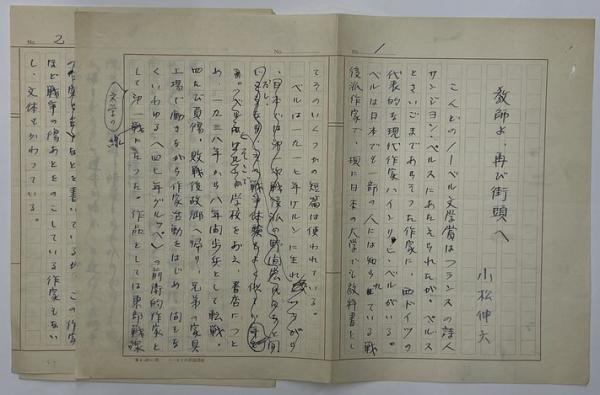 No. 1
教師よ、再び街頭へ
小松伸六
こんどのノーベル文学賞はフランスの詩人
サンジョン・ペルスにあたえられたが、ペルス
とさいごまであらそった作家に、西ドイツの
代表的な現代作家ハインリヒ・ベルがいる。
ベルは日本でも一部の人には知られている戦
後派作家で、現に日本の大学でも教科書とし
No.
てそのいくつかの短篇は使われている。
ベルは一九一七年ケルンに生れ
学校をおえ、書店につと
め、一九三八年から八年間歩兵として転戦。
四たび負傷、敗戦後故郷へ帰り、兄弟の家具
工場で働きながら作家活動をはじめ、間もな
くいわゆる〈四七年グルッペ〉の前衛的作家と
して第一線にたった。作品としては東部戦線
文学の
No. 2
などを書いているが、この作家
ほど戦争の傷あとをのこしている作家もない
し、文体もかわっている。